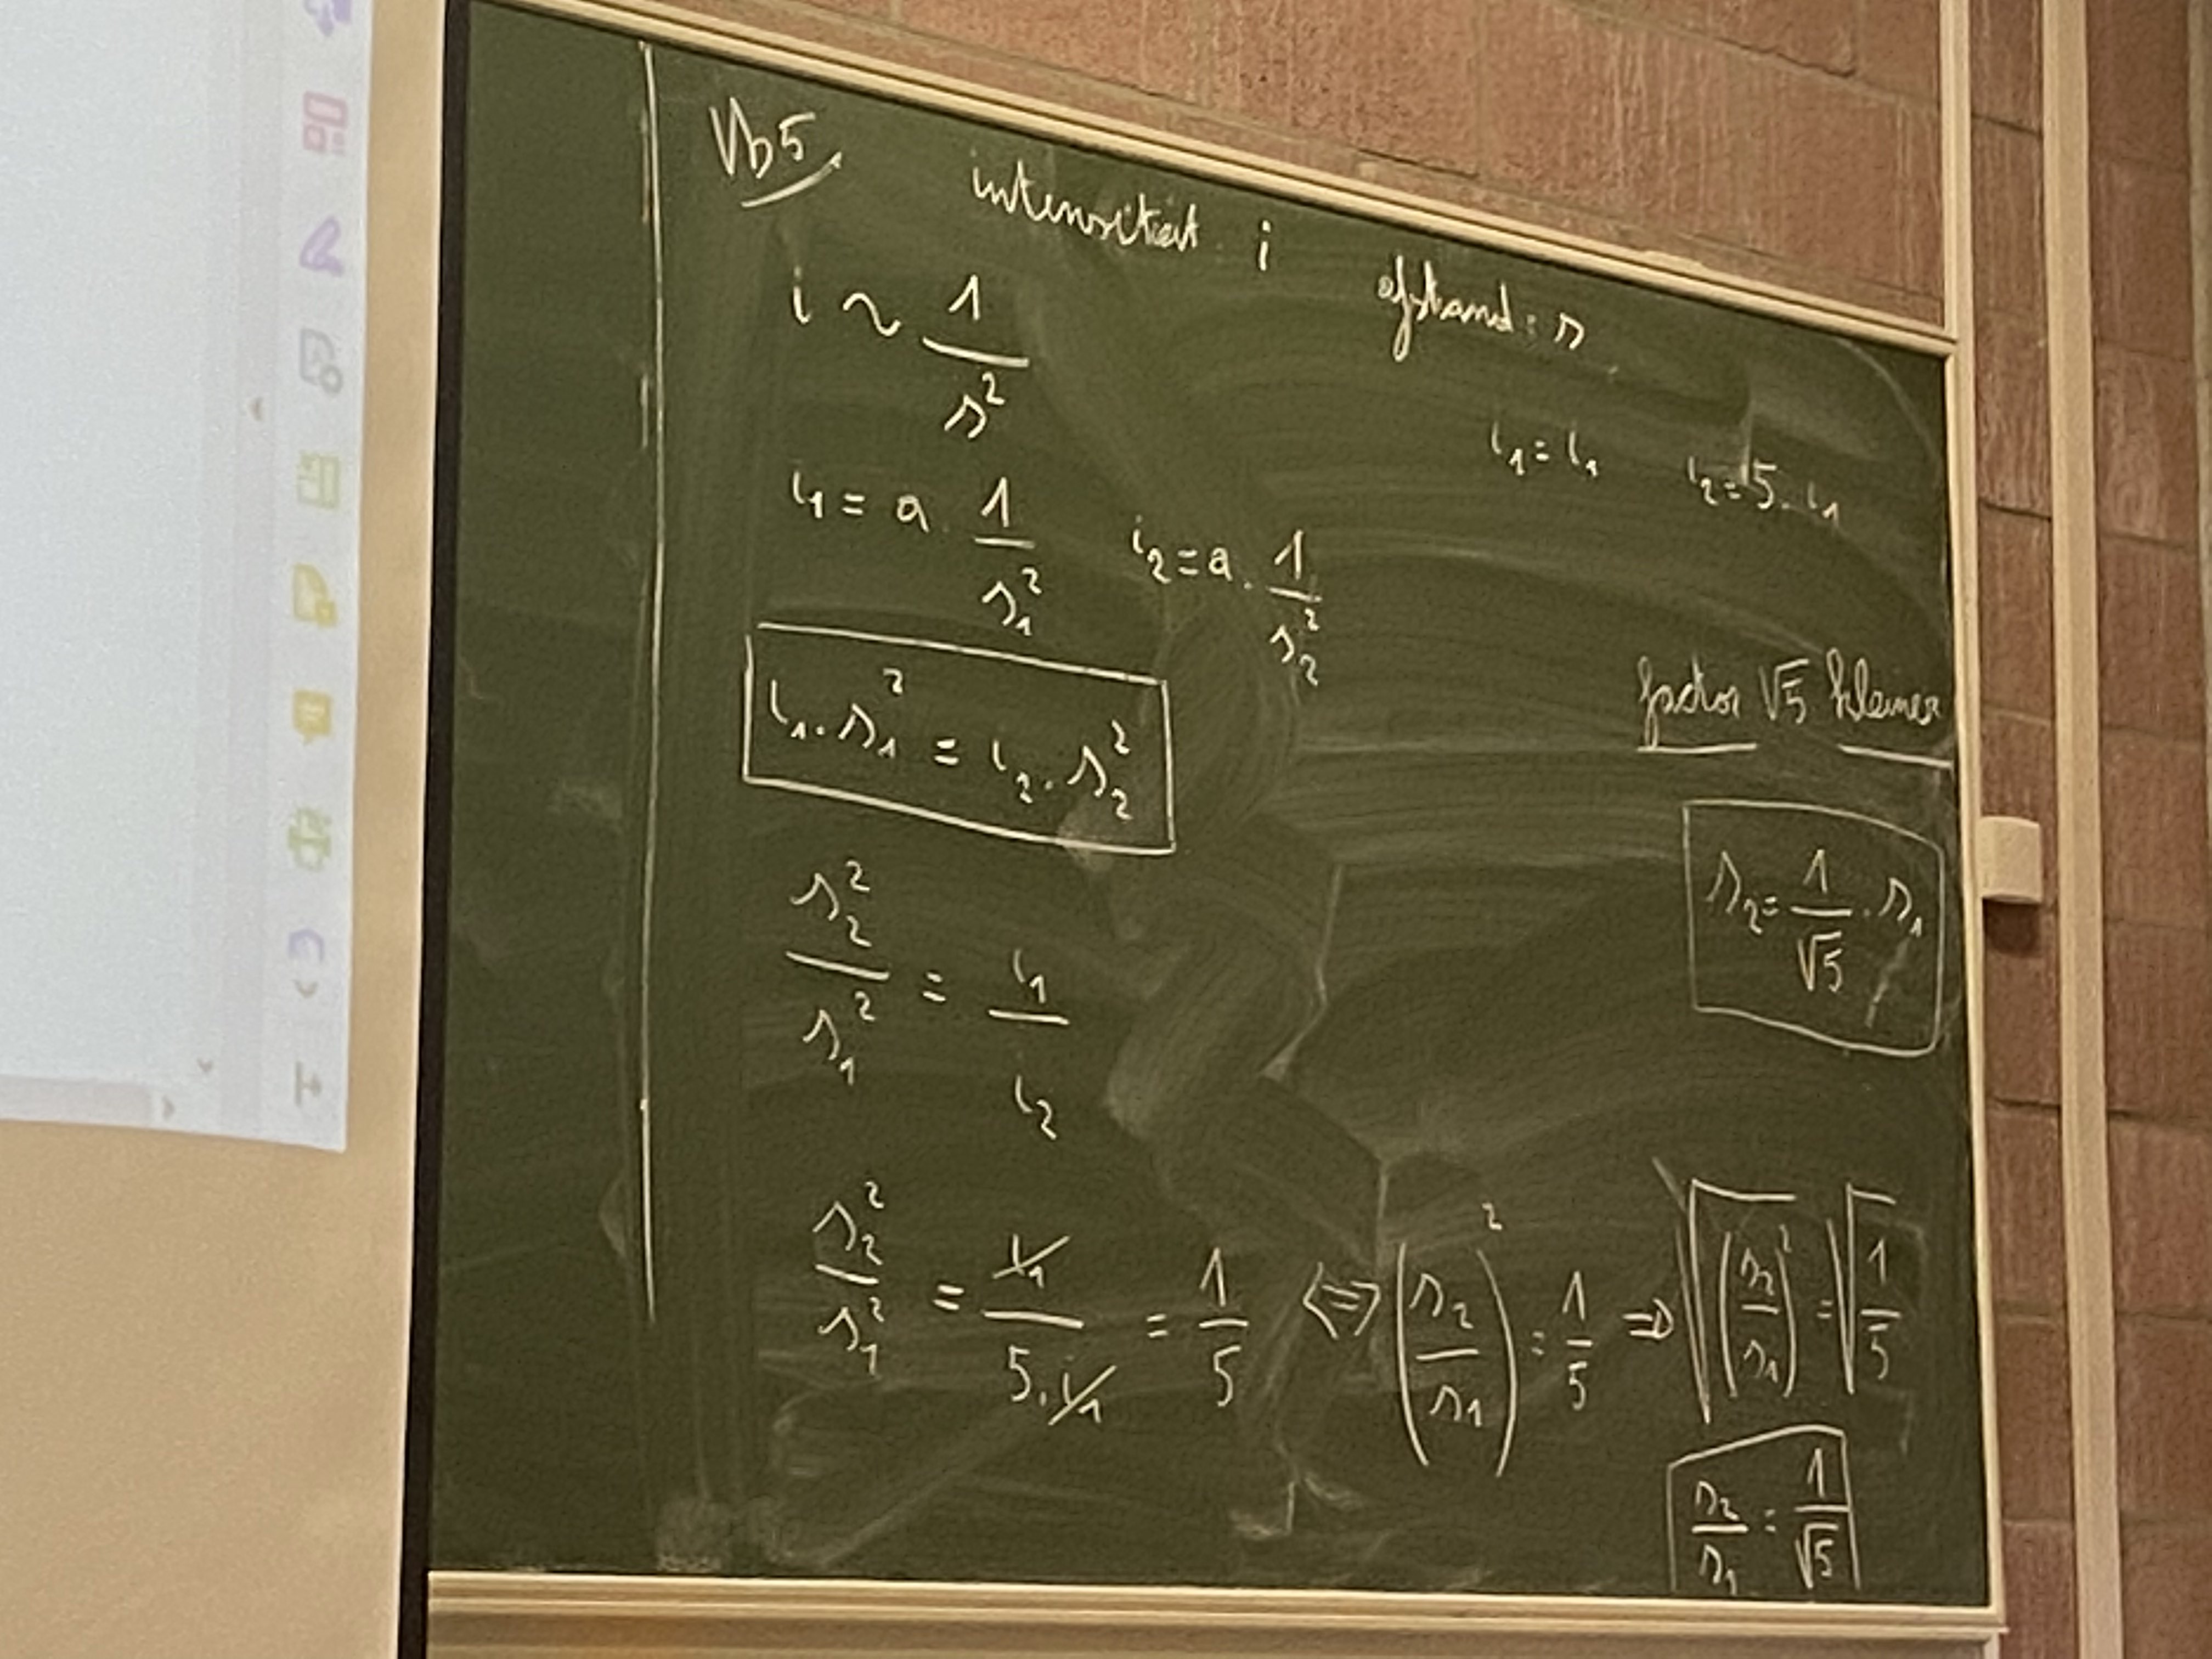 Vb5 intensiteit i afstand: r
i ~ 1/r²
i₁ = i₁ i₂ = 5 . i₁
i₁ = a . 1/r₁² i₂ = a . 1/r₂²
i₁ . r₁² = i₂ . r₂²
factor √5 kleiner
r₂ = 1/√5 . r₁
r₂²/r₁² = i₁/i₂
r₂²/r₁² = i₁/5.i₁ = 1/5 <=> (r₂/r₁)² = 1/5 => √(r₂/r₁)² = √1/5
r₂/r₁ = 1/√5